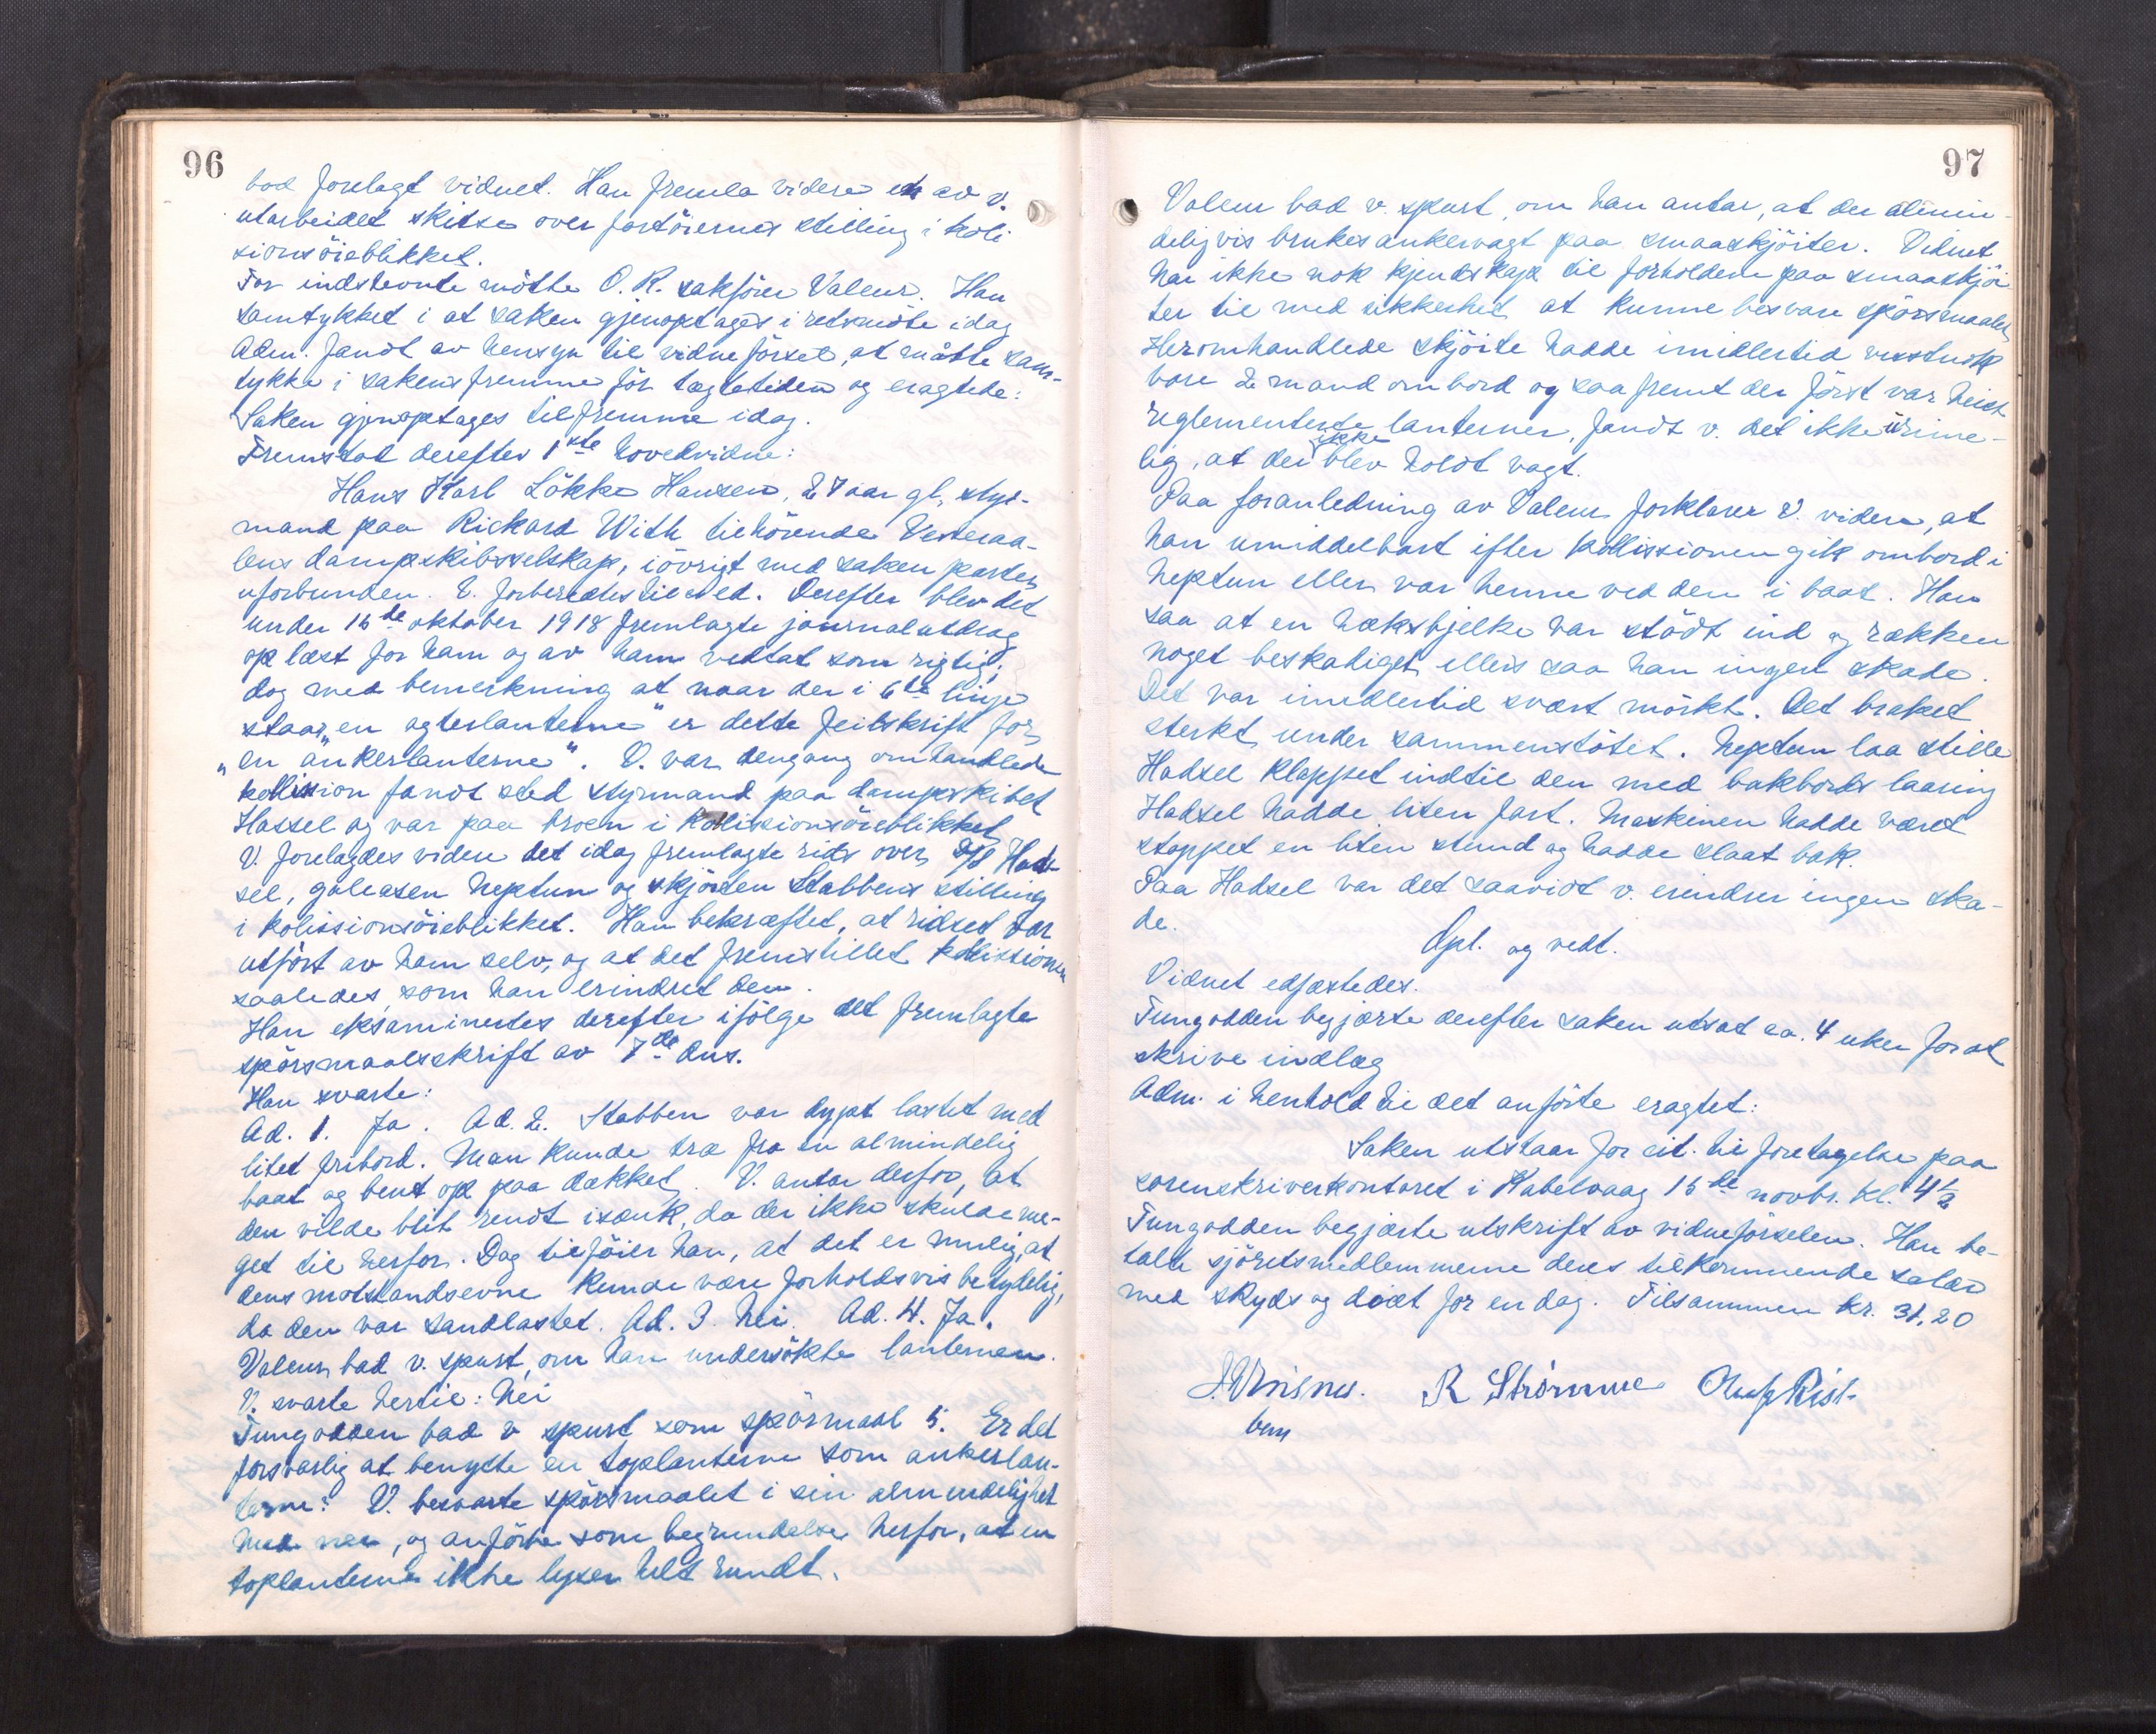 96
bad forelagt vidnet. Han fremla videre en av v.
utarbeidet skitse over fartöiernes stilling i koli
sionsöieblikket.
For indstevnte mötte O. R. sakförer Valeur. Han
samtykket i at saken gjenoptages i retsmöte idag
Adm. fandt av hensyn til vidneförsel, at måtte sam-
tykke i sakens fremme för tægtetiden og eragtede:
Saken gjenoptages til fremme idag.
Fremstod derefter 1ste hovedvidne:
Hans Karl Lökke Hansen, 27 aar gl. styr-
mand paa Rickard With tilhörende Vesteraa-
lens dampskibsselskap, iövrigt med saken parter
uforbunden. E. forberedtes til ed. Derefter blev det
under 16de oktober 1918 fremlagte journalutdrag
oplæst for ham og av ham vedtat som rigtig;
dog med bemerkning at naar der i 6te linje
staar „en agterlanterne" er dette feilskrift for
„en ankerlanterne". V. var dengang omhandlede
kollision fandt sted styrmand paa dampskibet
Hassel og var paa broen i kollissionsöieblikket
V. forelagdes viden det idag fremlagte rids over D/S Had-
sel, galeasen Neptun og skjöiten Stabbens stilling
i kolissionsöieblikket. Han bekræftet, at ridset var
utfört av ham selv, og at det fremstillet kollissionen
saaledes, som han erindret den.
Han eksaminertes derefter ifölge det fremlagte
spörsmaalsskrift av 7de dns.
Han svarte:
Ad. 1. Ja. Ad. 2. Stabben var dypt lastet med
litet fribord. Man kunde træ fra en almindelig
baat og bent op paa dækket. V. antar derfor, at
den vilde blit rendt isænk, da der ikke skulde me-
get til herfor. Dog tilföier han, at det er mulig, at
dens motstandsevne kunde være forholdsvis betydelig,
da den var sandlastet. Ad. 3. Nei. Ad. 4. Ja.
Valeur bad v. spurt, om han undersökte lanternen.
V. svarte hertil: Nei
Tungodden bad v spurt som spörmaal 5. Er det
forsvarlig at benytte en toplanterne som ankerlan-
terne? V. besvarte spörsmaalet i sin almindelighet
med nei, og anförte som begrundelse herfor, at en
toplanterne ikke lyser helt rundt.
97
Valeur bad v. spurt, om han antar, at der almin-
deligvis brukes ankervagt paa smaaskjöiter. Vidnet
har ikke nok kjendskap til forholdene paa smaaskjöi-
ter til med sikkerhet at kunne besvare spörsmaalet
Heromhandlede skjöite hadde imidlertid visstnok
bare 2 mand ombord og saafremt der först var heist
reglementerte lanterner, fandt v. det ikke urime-
lig, at der ikke blev holdt vagt.
Paa foranledning av Valeur forklarer v. videre, at
han umiddelbart efter kollissionen gik ombord i
Neptun eller var henne ved den i baat. Han
saa at en hæksbjelke var stödt ind og rækken
noget beskadiget, ellers saa han ingen skade.
Det var imidlertid svært mörkt. Det braket
sterkt under sammenstötet. Neptun laa stille
Hadsel klappet indtil den med bakbords laaring
Hadsel hadde liten fart. Maskinen hadde været
stoppet en liten stund og hadde slaat bak.
Paa Hadsel var det saavidt v. erindrer ingen ska-
de.
Opl. og vedt.
Vidnet edfæstedes.
Tungodden begjærte derefter saken utsat ca. 4 uker for at
skrive indlæg
Adm. i henhold til det anförte eragtet:
Saken utstaar for cit. til foretagelse paa
sorenskriverkontoret i Kabelvaag 15de novbr. kl. 4½
Tungodden begjærte utskrift av vidneförselen. Han be-
talte sjöretsmedlemmerne deres tilkommende salær
med skyds og diæt for en dag. Tilsammen kr. 31,20
R Strömme